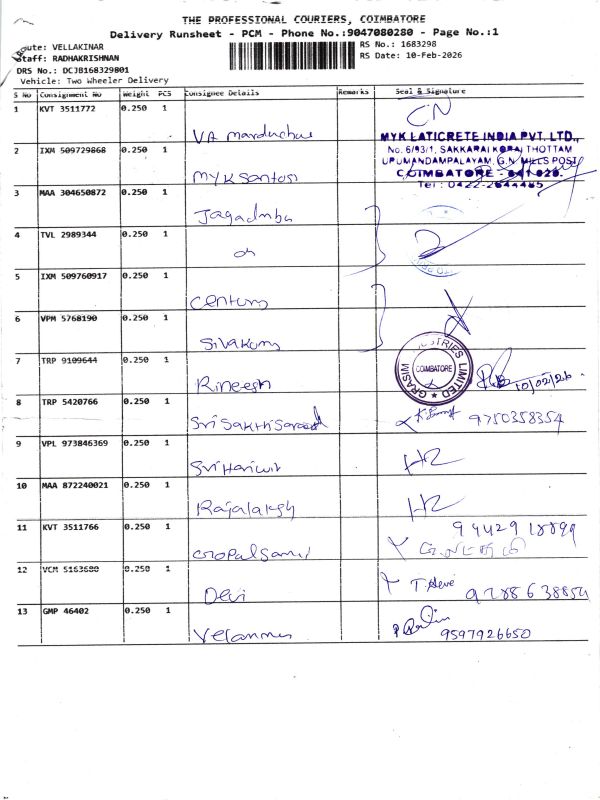 THE PROFESSIONAL COURIERS, COIMBATORE
Delivery Runsheet - PCM - Phone No.:9047080280 - Page No.:1
Route: VELLAKINAR
Staff: RADHAKRISHNAN
DRS No.: DCJB168329801
Vehicle: Two Wheeler Delivery
RS No.: 1683298
RS Date: 10-Feb-2026
S No Consignment No Weight PCS Consignee Details Remarks Seal & Signature
1 KVT 3511772 0.250 1 VA CN
MYK LATICRETE INDIA PVT. LTD.,
No. 6/93/1, SAKKARAI KORAI THOTTAM
UPUMANDAMPALAYAM, G.N. MILLS POST
COIMBATORE - 641 029.
Tel : 0422-2644485
2 IXM 509729868 0.250 1 MYK Santosi
3 MAA 304650872 0.250 1 Jagadmba
4 TVL 2989344 0.250 1
5 IXM 509760917 0.250 1 Centum
6 VPM 5768190 0.250 1 Sivakumr
7 TRP 9109644 0.250 1 Rineesh 10/02/26
GRASIM INDUSTRIES LIMITED
COIMBATORE
8 TRP 5420766 0.250 1 Sri Sakthi 9750358354
9 VPL 973846369 0.250 1 HR
10 MAA 872240021 0.250 1 HR
11 KVT 3511766 0.250 1 Gopalsami
12 VCM 5163680 0.250 1 Devi T. Devi
13 GMP 46402 0.250 1 9597926650